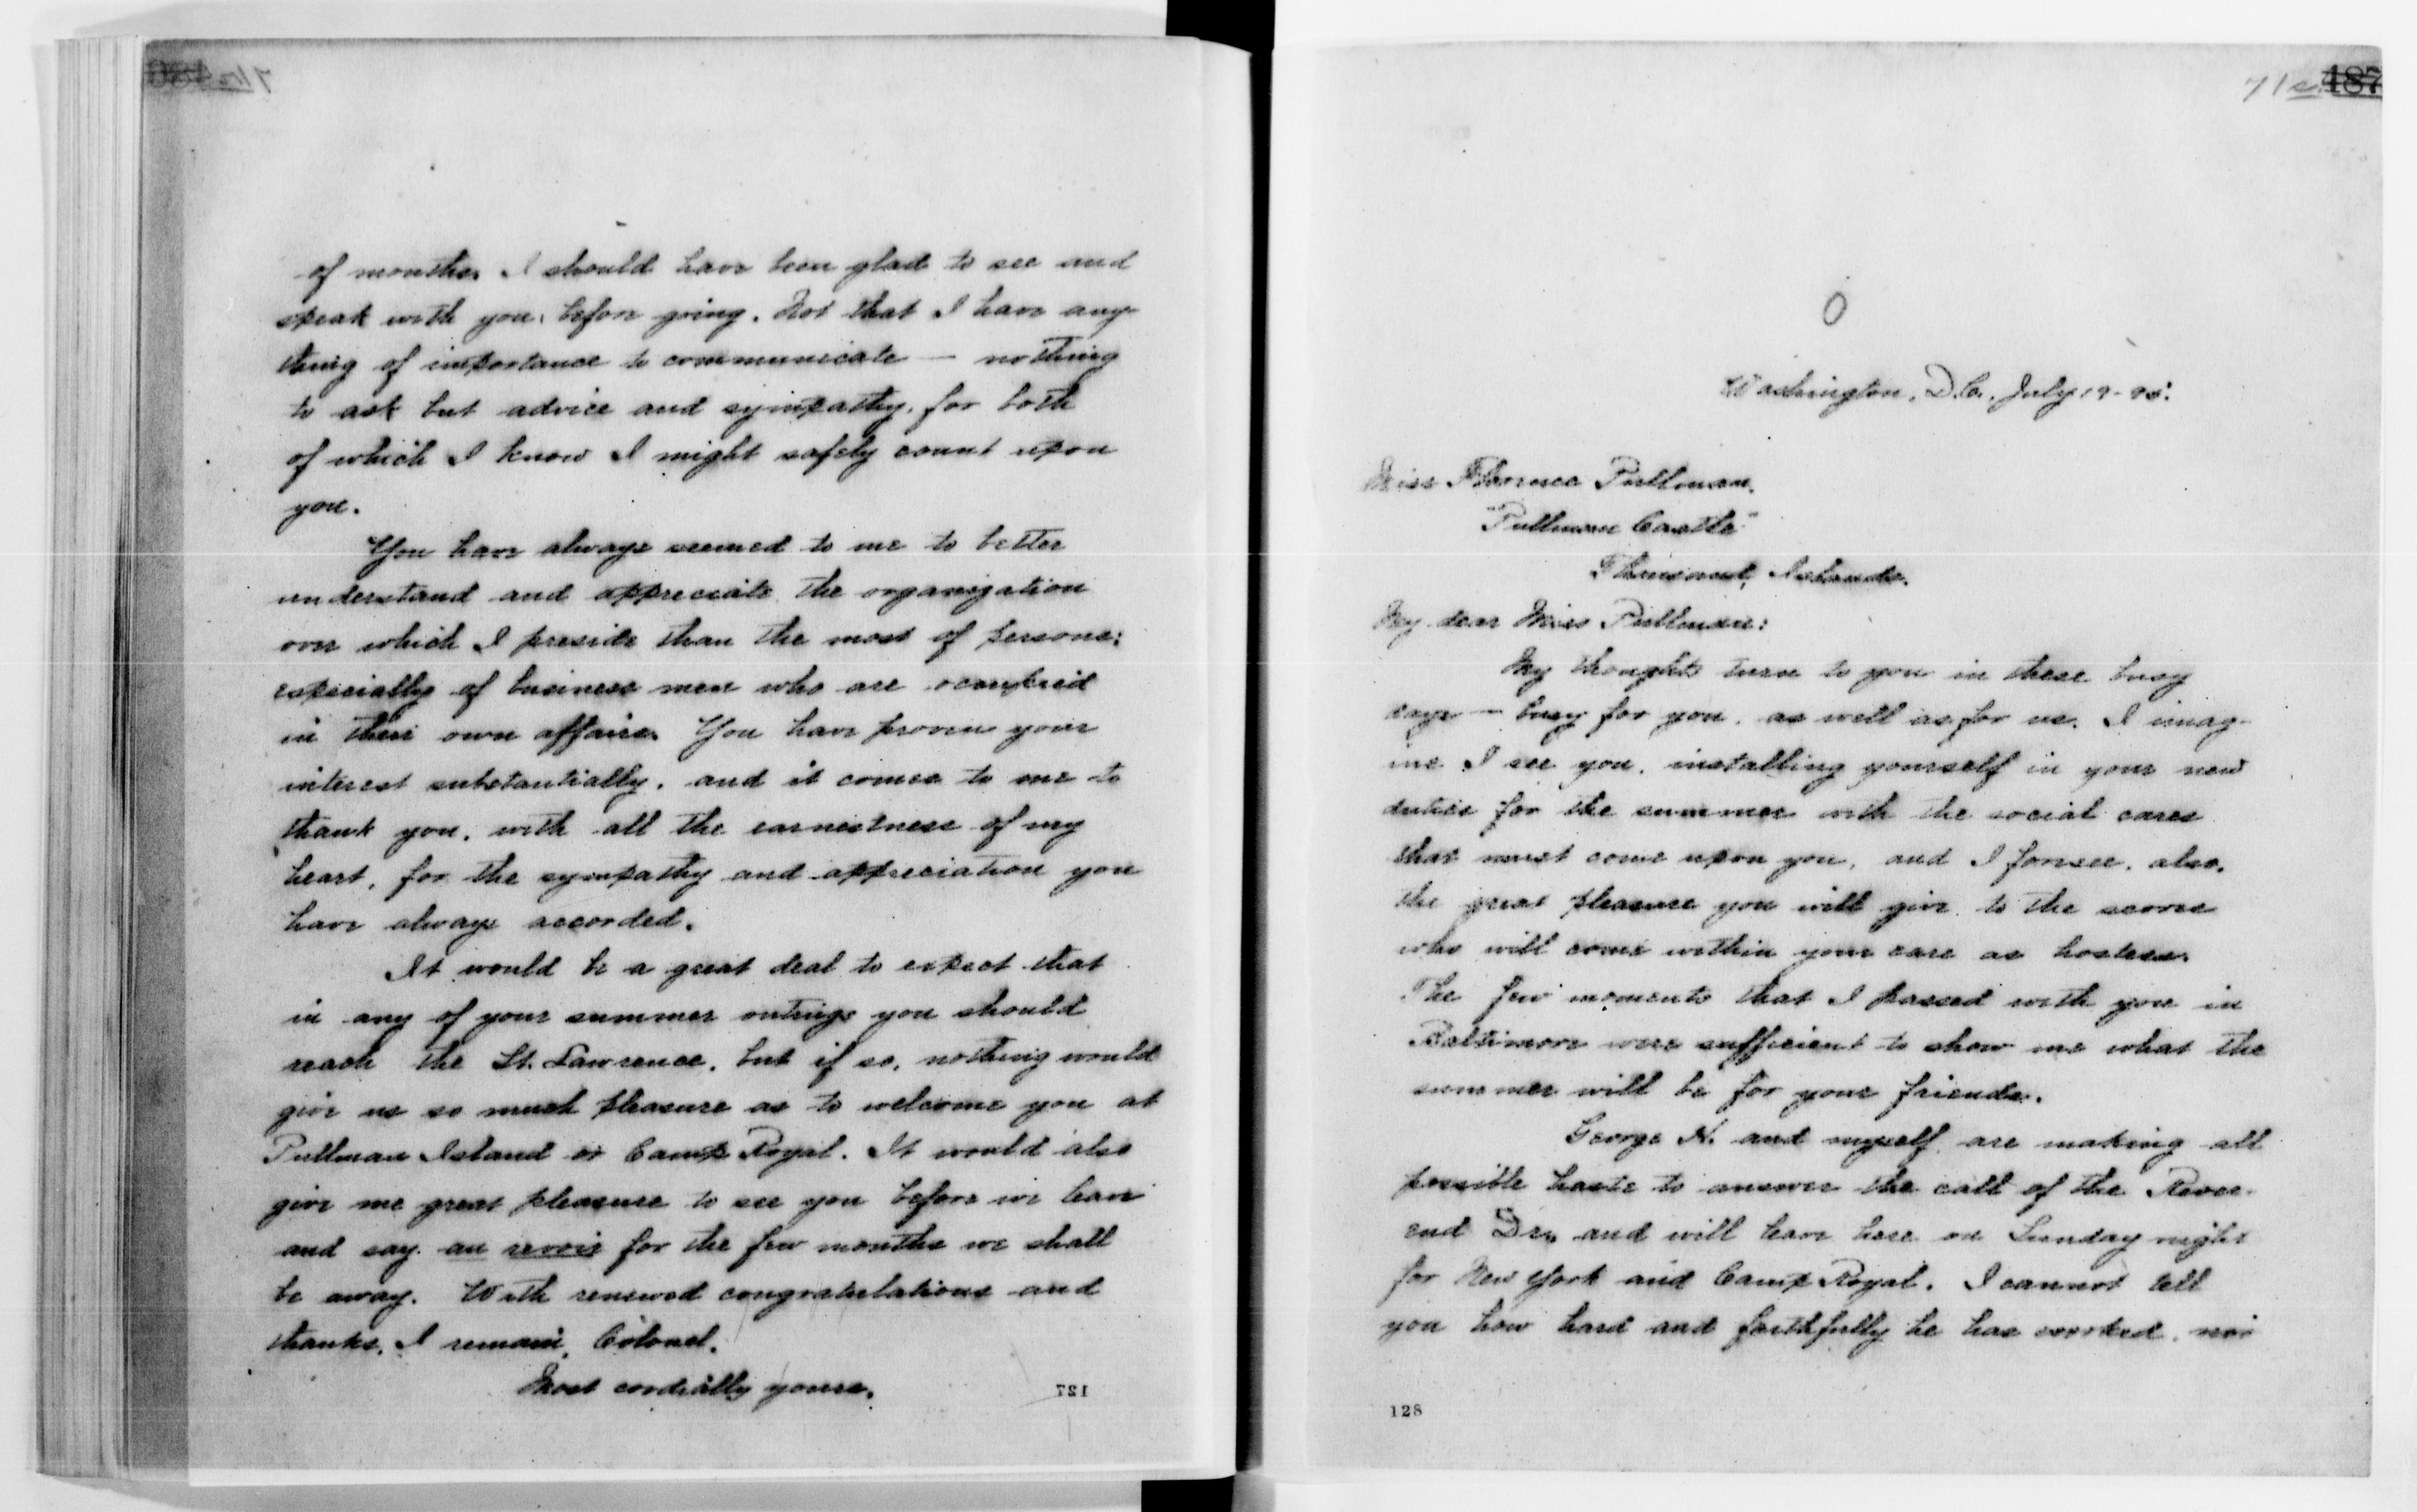 of months. I should have been glad to see and
speak with you, before going. Not that I have any-
thing of importance to communicate — nothing
to ask but advice and sympathy, for both
of which I know I might safely count upon
you.
You have always seemed to me to better
understand and appreciate the organization
over which I preside than the most of persons;
especially of business men who are occupied
in their own affairs. You have proven your
interest substantially, and it comes to me to
thank you, with all the earnestness of my
heart, for the sympathy and appreciation you
have always accorded.
It would be a great deal to expect that
in any of your summer outings you should
reach the St. Lawrence, but if so, nothing would
give us so much pleasure as to welcome you at
Pullman Island or Camp Royal. It would also
give me great pleasure to see you before we leave
and say au revoir for the few months we shall
be away. With renewed congratulations and
thanks, I remain, Colonel,
Most cordially yours,
127
71c 187
Washington, D.C., July 19-95.
Miss Florence Pullman,
"Pullman Castle"
Thousand Islands.
My dear Miss Pullman:
My thoughts turn to you in these busy
days — busy for you, as well as for us. I imag-
ine I see you, installing yourself in your new
duties for the summer with the social cares
that must come upon you, and I forsee, also,
the great pleasure you will give to the scores
who will come within your care as hostess.
The few moments that I passed with you in
Baltimore were sufficient to show me what the
summer will be for your friends.
George N. and myself are making all
possible haste to answer the call of the Rever-
end Dr., and will leave here on Sunday night
for New York and Camp Royal. I cannot tell
you how hard and faithfully he has worked, nor
128